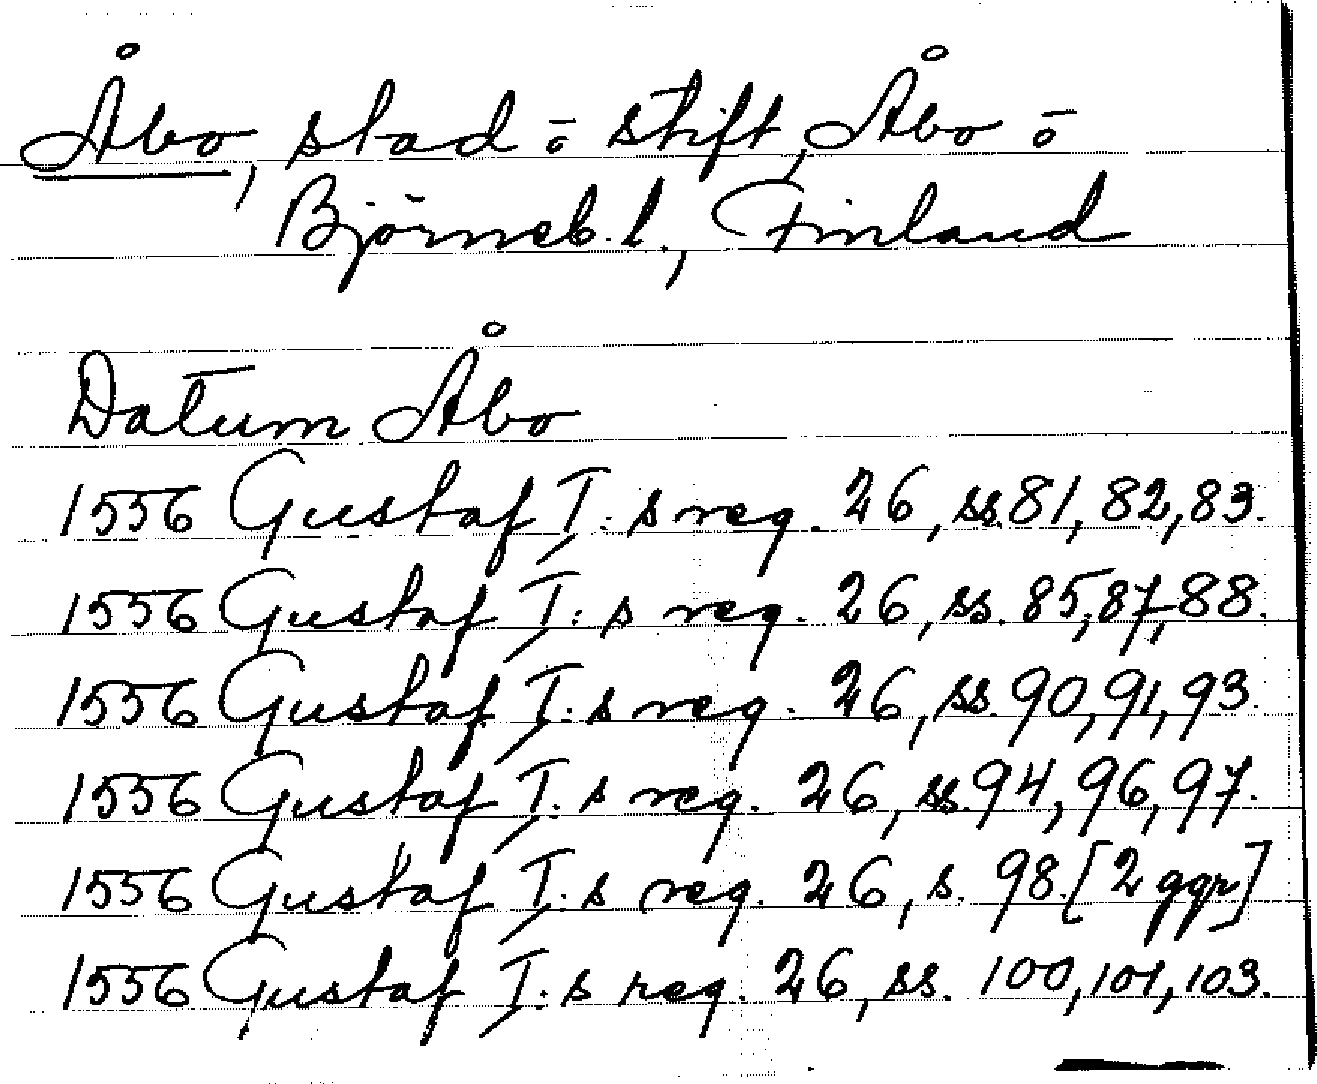 Åbo, stad ō stift, Åbo ō
Björneb. l., Finland
Datum Åbo
1556 Gustaf I:s reg. 26, ss. 81, 82, 83.
1556 Gustaf I:s reg. 26, ss. 85, 87, 88.
1556 Gustaf I:s reg. 26, ss. 90, 91, 93.
1556 Gustaf I:s reg. 26, ss. 94, 96, 97.
1556 Gustaf I:s reg. 26, s. 98. [2 ggr]
1556 Gustaf I:s reg. 26, ss. 100, 101, 103.